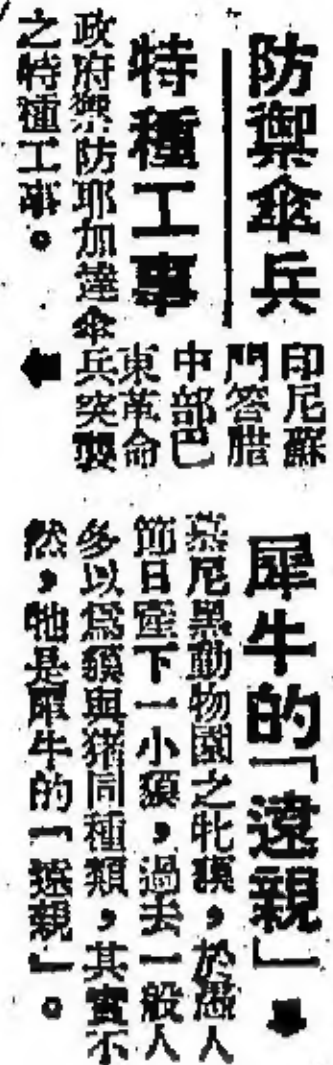 防禦傘兵
特種工事
印尼蘇
門答腊
中部巴
東革命
政府禦防耶加達傘兵突襲
之特種工事。
犀牛的「遠親」
慕尼黑動物園之牝獏，於愚人
節日產下一小獏，過去一般人
多以爲獏與猪同種類，其實不
然，牠是犀牛的「遠親」。